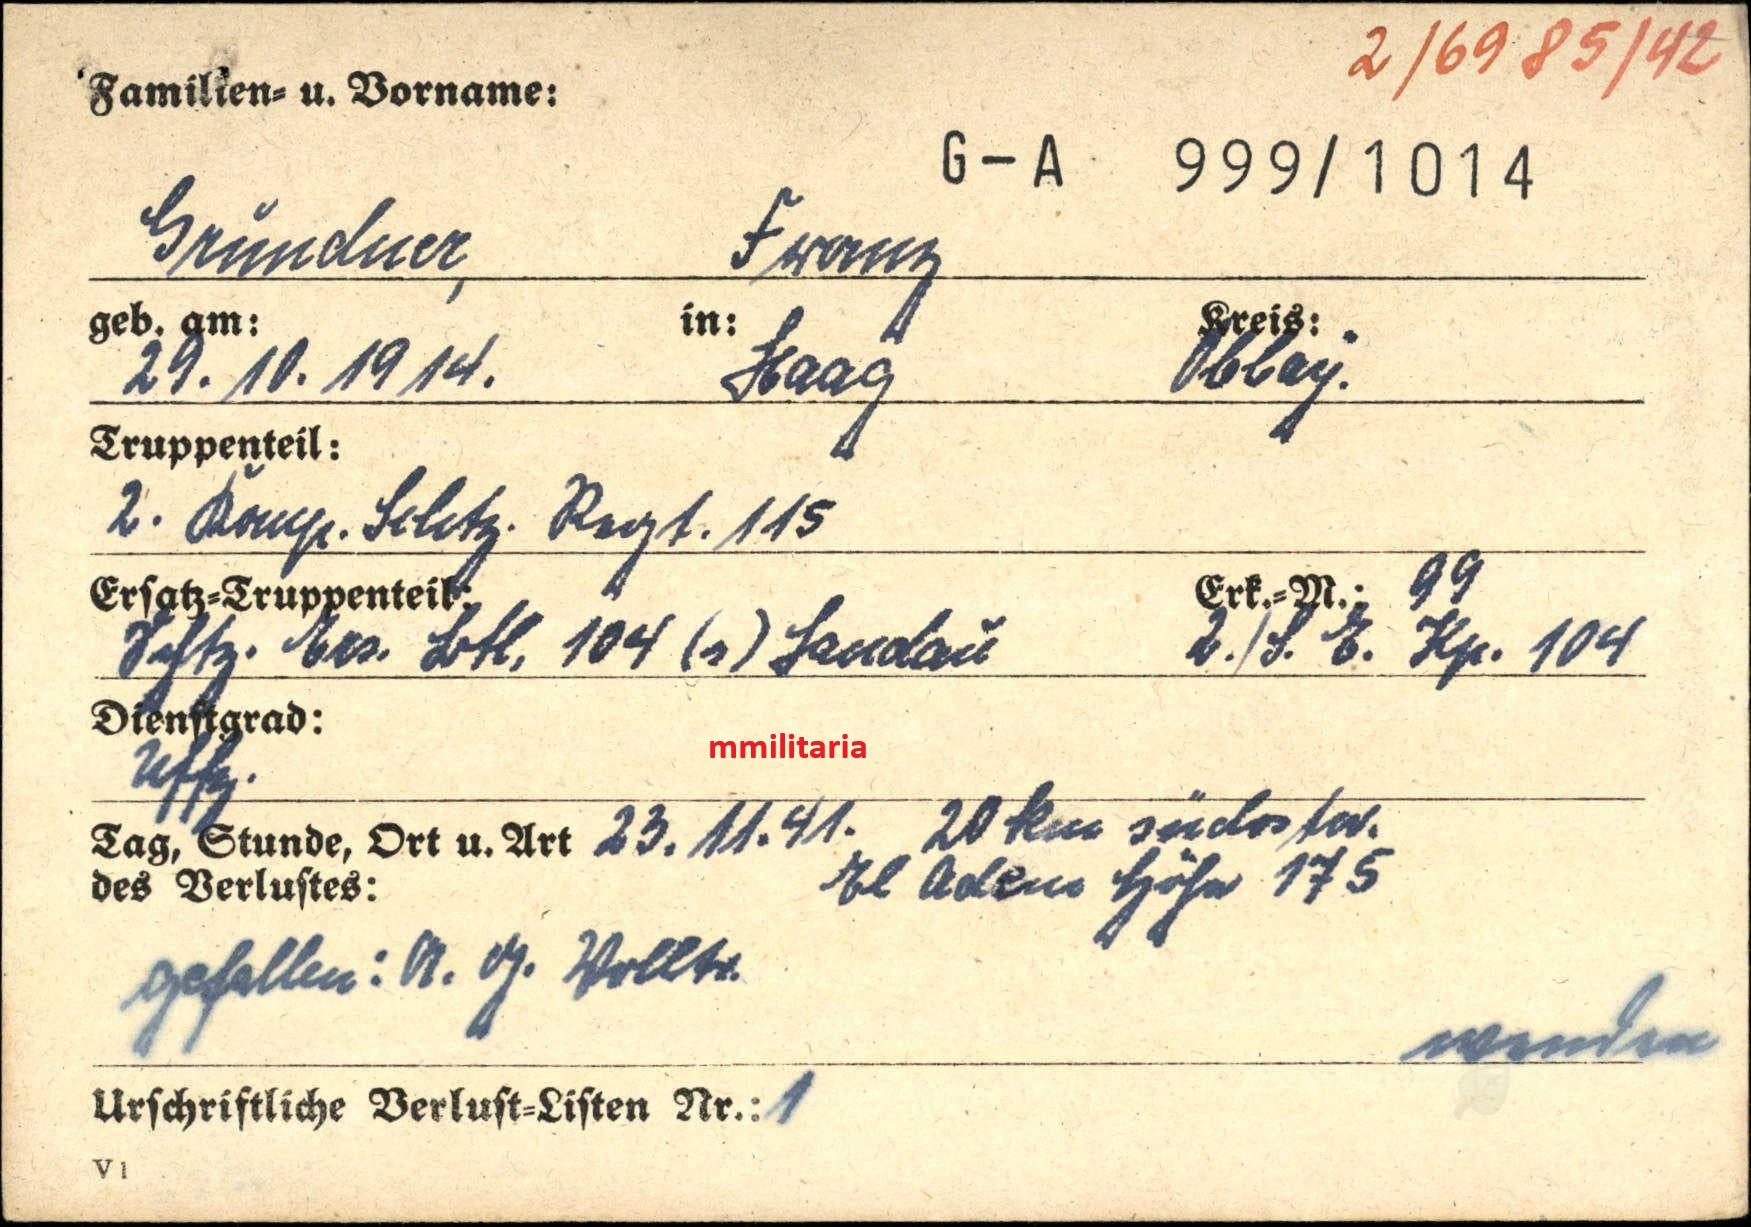 2/69 85/42
Familien- u. Vorname:
G-A 999/1014
Gründner, Franz
geb. am: in: Kreis:
29. 10. 1914. Haag Obbay.
Truppenteil:
2. Komp. Schtz. Regt. 115
Ersatz-Truppenteil: Erk.-M.: 99
Schtz. Ers. Btl. 104 (s) Landau 2./S. E. Kp. 104
Dienstgrad:
Uffz.
mmilitaria
Tag, Stunde, Ort u. Art 23. 11. 41. 20 km südostw.
des Verlustes: El Adem Höhe 175
gefallen: A. G. Volltr.
wenden
Urschriftliche Verlust-Listen Nr.: 1
V 1